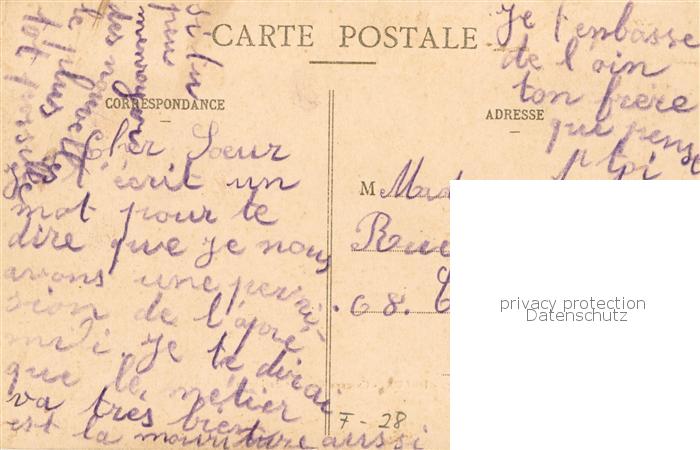 CARTE POSTALE
CORRESPONDANCE
Cher Sœur
Je t'écrit un
mot pour te
dire que je nous
avons une permi-
sion de l'apré
midi. Je te dirai
que le métier
va très bien
est la nouriture aussi
si tu
peu
m'envoyer
des nouvelles
le plus
tot possible
Je t'embasse
de loin
ton frère
qui pense
a toi
ADRESSE
M Mad
Rue
68.
7-28
privacy protection
Datenschutz